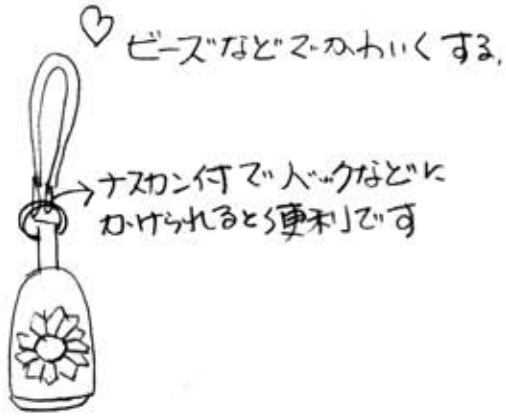 ♡ ビーズなどでかわいくする。
ナスカン付でバックなどに
かけられると便利です